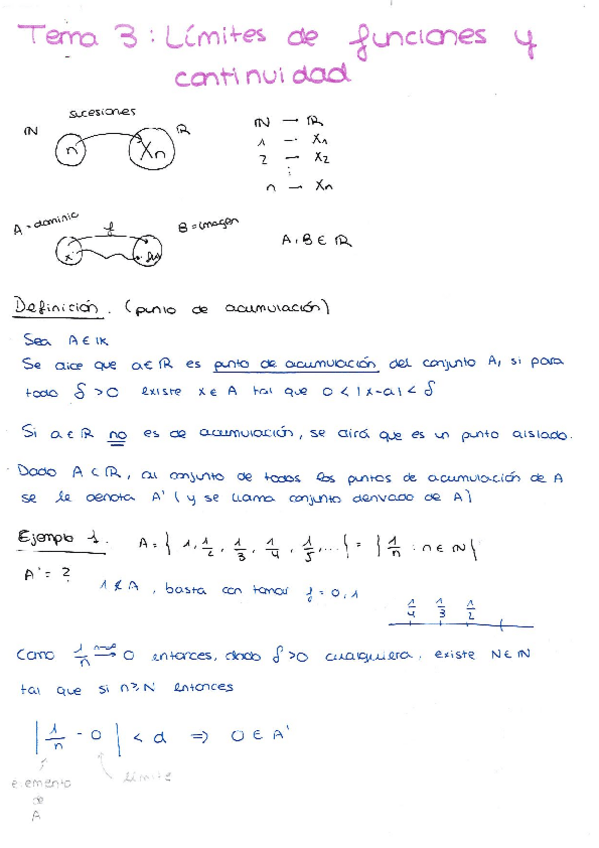 Tema 3: Límites de funciones y
continuidad
sucesiones
IN IR
n Xn
IN → IR
1 — X1
2 — X2
⋮
n — Xn
A = dominio f B = imagen
x
A, B ∈ IR
Definición. (punto de acumulación)
Sea A ∈ IR
Se dice que a ∈ IR es punto de acumulación del conjunto A, si para
todo δ > 0 existe x ∈ A tal que 0 < |x - a| < δ
Si a ∈ IR no es de acumulación, se dirá que es un punto aislado.
Dado A ⊂ IR, al conjunto de todos los puntos de acumulación de A
se le denota A' (y se llama conjunto derivado de A)
Ejemplo 1. A = { 1, 1/2, 1/3, 1/4, 1/5, ... } = { 1/n : n ∈ IN }
A' = ? 1 ∉ A, basta con tomar δ = 0,1
1/4 1/3 1/2
Como 1/n → 0 entonces, dado δ > 0 cualquiera, existe N ∈ IN
tal que si n ≥ N entonces
| 1/n - 0 | < d ⇒ 0 ∈ A'
elemento límite
de
A